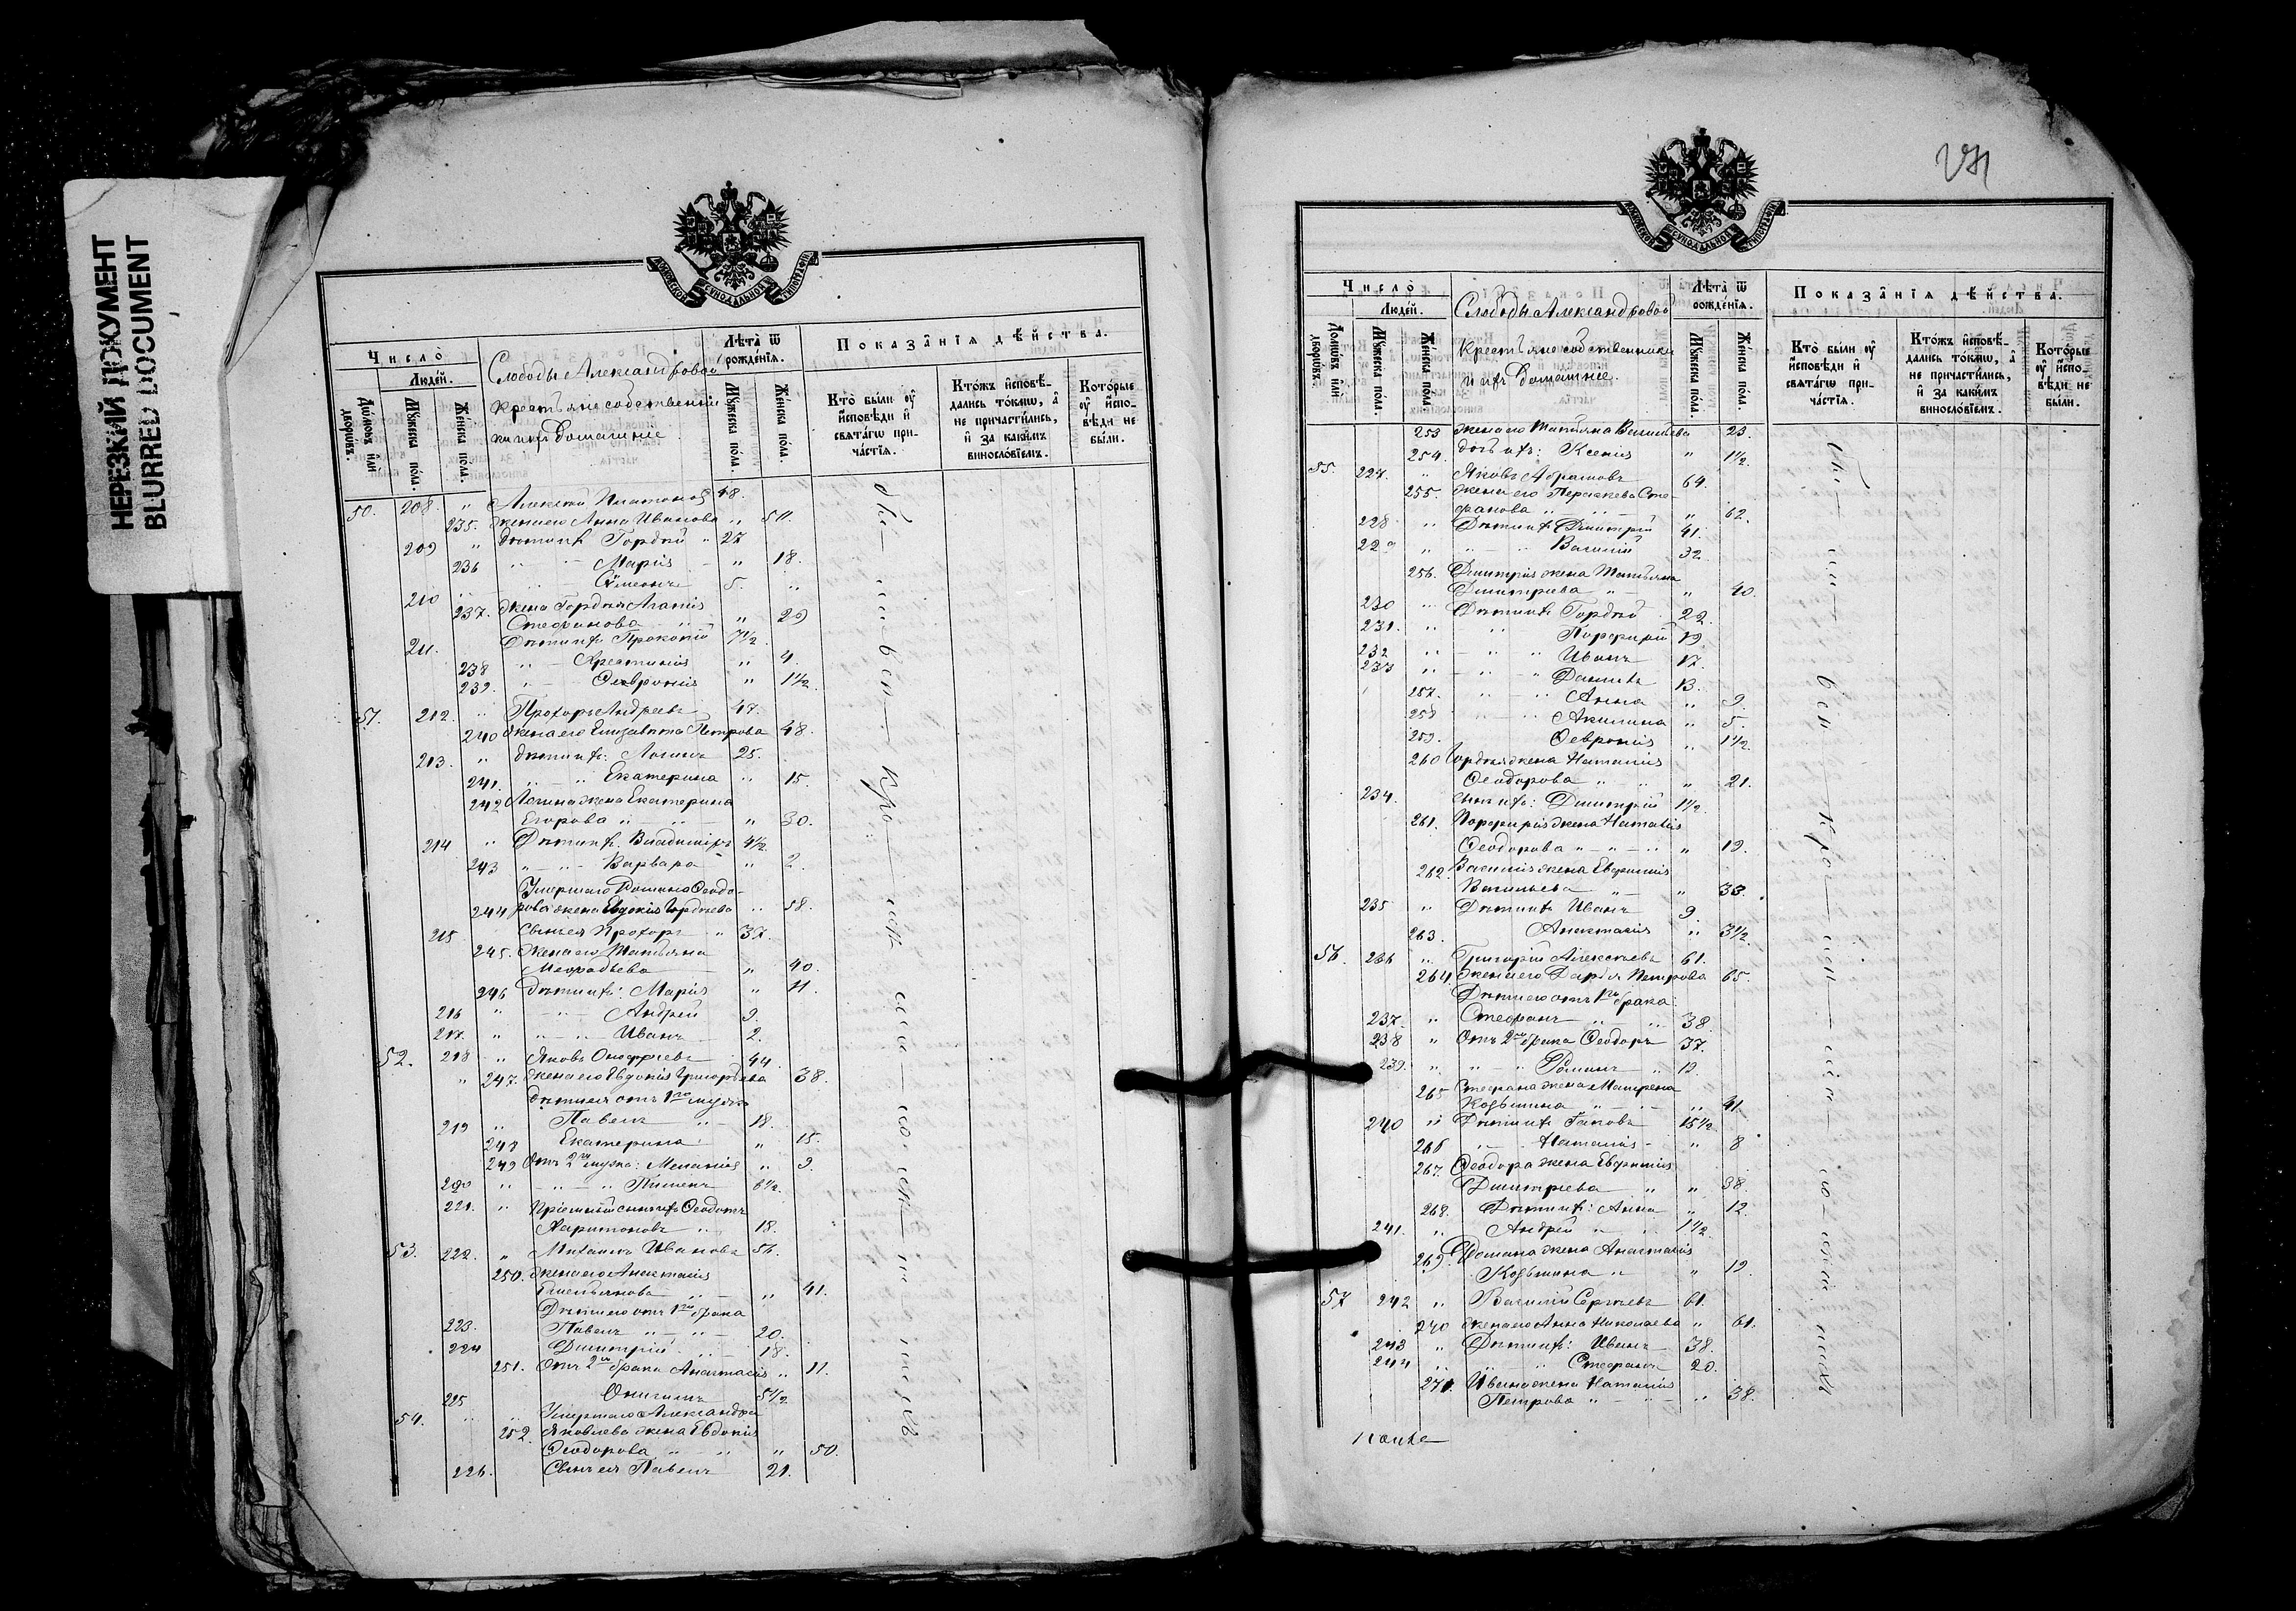 НЕРЕЗКИЙ ДОКУМЕНТ
BLURRED DOCUMENT
МОСКОВСКОЙ СУНОДАЛЬНОЙ ТИПОГРАФІИ
Число̀
Людей.
Домѡвъ или дворѡвъ.
Мꙋжеска пола.
Женска пола.
Слободы Александровой
крестьяне собственни
ки и ихъ домашніе.
Лѣта̀ ѿ рожденія.
Мꙋжеска пола.
Женска пола.
Показанія дѣйства.
Кто̀ были оу исповѣди и свѧтагѡ причастія.
Ктожъ исповѣдались токмѡ, а не причастились, и за какимъ винословіемъ.
Которые оу исповѣди не были.
50. 208. " Алексѣй Платоновъ 48.
235. жена его Анна Иванова " 50.
209 " дѣти ихъ Гордѣй " 27
236 " — " — Марія — " 18.
210 " — Сѵмеонъ 5. "
237. жена Гордѣя Агаѳія
Стефанова " " 29
211. Дѣти ихъ Прокопій 7½
238 " — Христинія " 4.
239. " — Ѳеvронія " 1½.
51. 212. " Прохоръ Андреевъ 47.
240 жена его Елизавета Петрова 48.
213. " дѣти ихъ: Логинъ 25.
241. " — " Екатерина " 15.
242 Логина жена Екатерина
Егорова " — " — " 30.
214 " Дѣти ихъ. Владиміръ 4½.
243 " — " — Варвара " 2.
Умершаго Романа Ѳеодо-
244 рова жена Евдокія Гордѣева " 58.
215 сынъ ея Прохоръ " 37.
245. жена его Татьяна
Меѳодьева — " 40.
246 дѣти ихъ: Марія " 11.
216 " — " — Андрей 9.
217. " — " — " Иванъ 2.
52. 218 " Яковъ Онофріевъ 44
" 247. жена его Евдокія Григорьева 38.
дѣти ея отъ 1го мужа
219 " Павелъ " — 18.
248 Екатерина: " 15.
249 Отъ 2го мужа: Меланія " 9.
220 " — " — " Пименъ 6½.
221. " Пріемный сынъ ихъ Ѳеодотъ
Харитоновъ " 18.
53. 222. " Михаилъ Ивановъ 56.
250. жена его Анастасія
Емельянова " — " 41.
Дѣти его отъ 1го брака
223. Павелъ " — " — 20.
224 Димитрій " — 18.
251. Отъ 2го брака Анастасія " 11.
225 Онисимъ 5½
54. " " Умершаго Александра
252. Яковлева жена Евдокія
Ѳеодорова " — " " 50.
226. Сынъ ея Павелъ 21.
Число̀
Людей.
Домѡвъ или дворѡвъ.
Мꙋжеска пола.
Женска пола.
Слободы Александровой
Крестьяне собственники
и ихъ домашніе.
Лѣта̀ ѿ рожденія.
Мꙋжеска пола.
Женска пола.
Показанія дѣйства.
Кто̀ были оу исповѣди и свѧтагѡ причастія.
Ктожъ исповѣдались токмѡ, а не причастились, и за какимъ винословіемъ.
Которые оу исповѣди не были.
253 жена его Татьяна Васильева 23.
254. дочь ихъ: Ксенія " 1½.
55. 227. " Яковъ Абрамовъ 64.
255. жена его Параскева Сте-
фанова " " — " 62.
228 " Дѣти ихъ Димитрій 41.
229 " " — " Василій 32.
256. Димитрія жена Татьяна
Димитріева " — " 40.
230 " Дѣти ихъ Гордѣй 22.
231. " " Порфирій 19.
232 " — " " Иванъ 17.
233 " — " — " Даніилъ 13.
257. " — " Анна " 9.
258 " — " Акилина " 5.
259. Ѳеvронія " 1½.
260 Гордѣя жена Наталія
Ѳеодорова " " " 21.
234. сынъ ихъ: Димитрій 1½.
261. Порфирія жена Наталія
Ѳеодорова " — " — " " 19.
262. Василія жена Евфимія
Васильева " — " 33.
235 " Дѣти ихъ Иванъ 9.
263. Анастасія " 3½.
56. 236 " Григорій Алексѣевъ 61.
264. жена его Дарья Петрова 65.
Дѣти его отъ 1го брака:
237. " Стефанъ " " 38.
238 " Отъ 2го брака Ѳеодоръ 37.
239. " " — " Романъ " 19.
265 Стефана жена Матрена
Козьмина " — " — " 41.
240 " Дѣти ихъ Іаковъ 15½
266 " — Наталія - " 8
267. Ѳеодора жена Евфимія
Димитріева " " 38.
268. Дѣти ихъ: Анна " 12.
241. " Андрей " " 1½.
269. Романа жена Анастасія
Козьмина " " 19.
57 242 " Василій Сергѣевъ 61.
240 жена его Анна Николаева " 61.
243 " Дѣти ихъ: Иванъ 38.
244 " " — " Стефанъ 20.
271. Ивана жена Наталія
Петрова " — " — " 38.